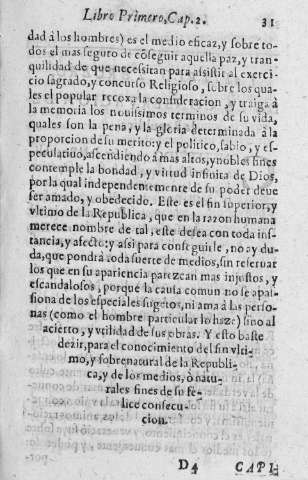 Libro Primero, Cap. 2. 31
dad à los hombres) es el medio eficaz, y sobre to-
dos el mas seguro de cõseguir aquella paz, y tran-
quilidad de que necessitan para assistir al exerci-
cio sagrado, y concurso Religioso, sobre los qua-
les el popular recoxa la consideracion, y traiga à
la memoria los nouissimos terminos de su vida,
quales son la pena, y la gloria determinada à la
proporcion de su merito: y el politico, sabio, y es-
peculatiuo, ascendiendo à mas altos, y nobles fines
contemple la bondad, y virtud infinita de Dios,
por la qual independentemente de su poder deue
ser amado, y obedecido. Este es el fin superior, y
vltimo de la Republica, que en la razon humana
merece nombre de tal, este desea con toda ins-
tancia, y afecto: y assi para conseguirle, no ay du-
da, que pondrà toda suerte de medios, sin reseruar
los que en su apariencia parezcan mas injustos, y
escandalosos, porque la causa comun no se apas-
siona de los especiales sugetos, ni ama à las perso-
nas (como el hombre particular lo haze) sino al
acierto, y vtilidad de sus obras. Y esto baste
dezir, para el conocimiento del fin vlti-
mo, y sobrenatural de la Republi-
ca, y de los medios, ò natu-
rales fines de su fe-
lice consecu-
cion.
D4 CAPI-